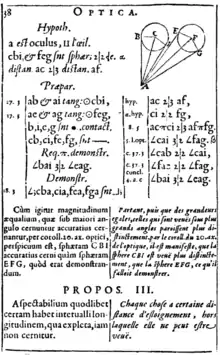 58 OPTICA.
B E G
A
Hypoth.
a est oculus, Π l'œil.
distan ac 2|3 distan. af.
Præpar.
ab & ai tang: ⊙cbi,
ae & ag tang: ⊙feg,
b,i,e,g snt contact.
cb, ci, fe, fg, snt
Req. demonstr.
∠bai 3|2 ∠eag.
Demonstr.
∠;cba,cia,fea,fga snt
hyp. ac 2|3 af,
hyp. ci 2|2 fg,
∠cai 3|2 ∠fag.
∠cab 2|2 ∠cai,
∠fae 2|2 ∠fag,
∠bai 3|2 ∠eag.
Cùm igitur magnitudinum
æqualium, quæ sub maiori an-
gulo cernuntur accuratiùs cer-
nantur, per coroll. 20. a1. optici,
perspicuum est, sphæram CBI
accuratiùs cerni quàm sphæram
EFG, quòd erat demonstran-
dum.
Partant, puis que des grandeurs
egales, celles qui sont veuës sous plus
grands angles paroissent plus di-
stinctement, par le coroll. du 20.a1.
de l'optique, il est manifeste, que la
sphere CBI est veuë plus distincte-
ment, que la sphere EFG, ce qu'il
falloit demonstrer.
PROPOS. III.
Aspectabilium quodlibet
certam habet intervalli lon-
gitudinem, qua expleta, iam
non cernitur.
Chaque chose a certaine di-
stance d'esloignement, hors
laquelle elle ne peut estre
veuë.